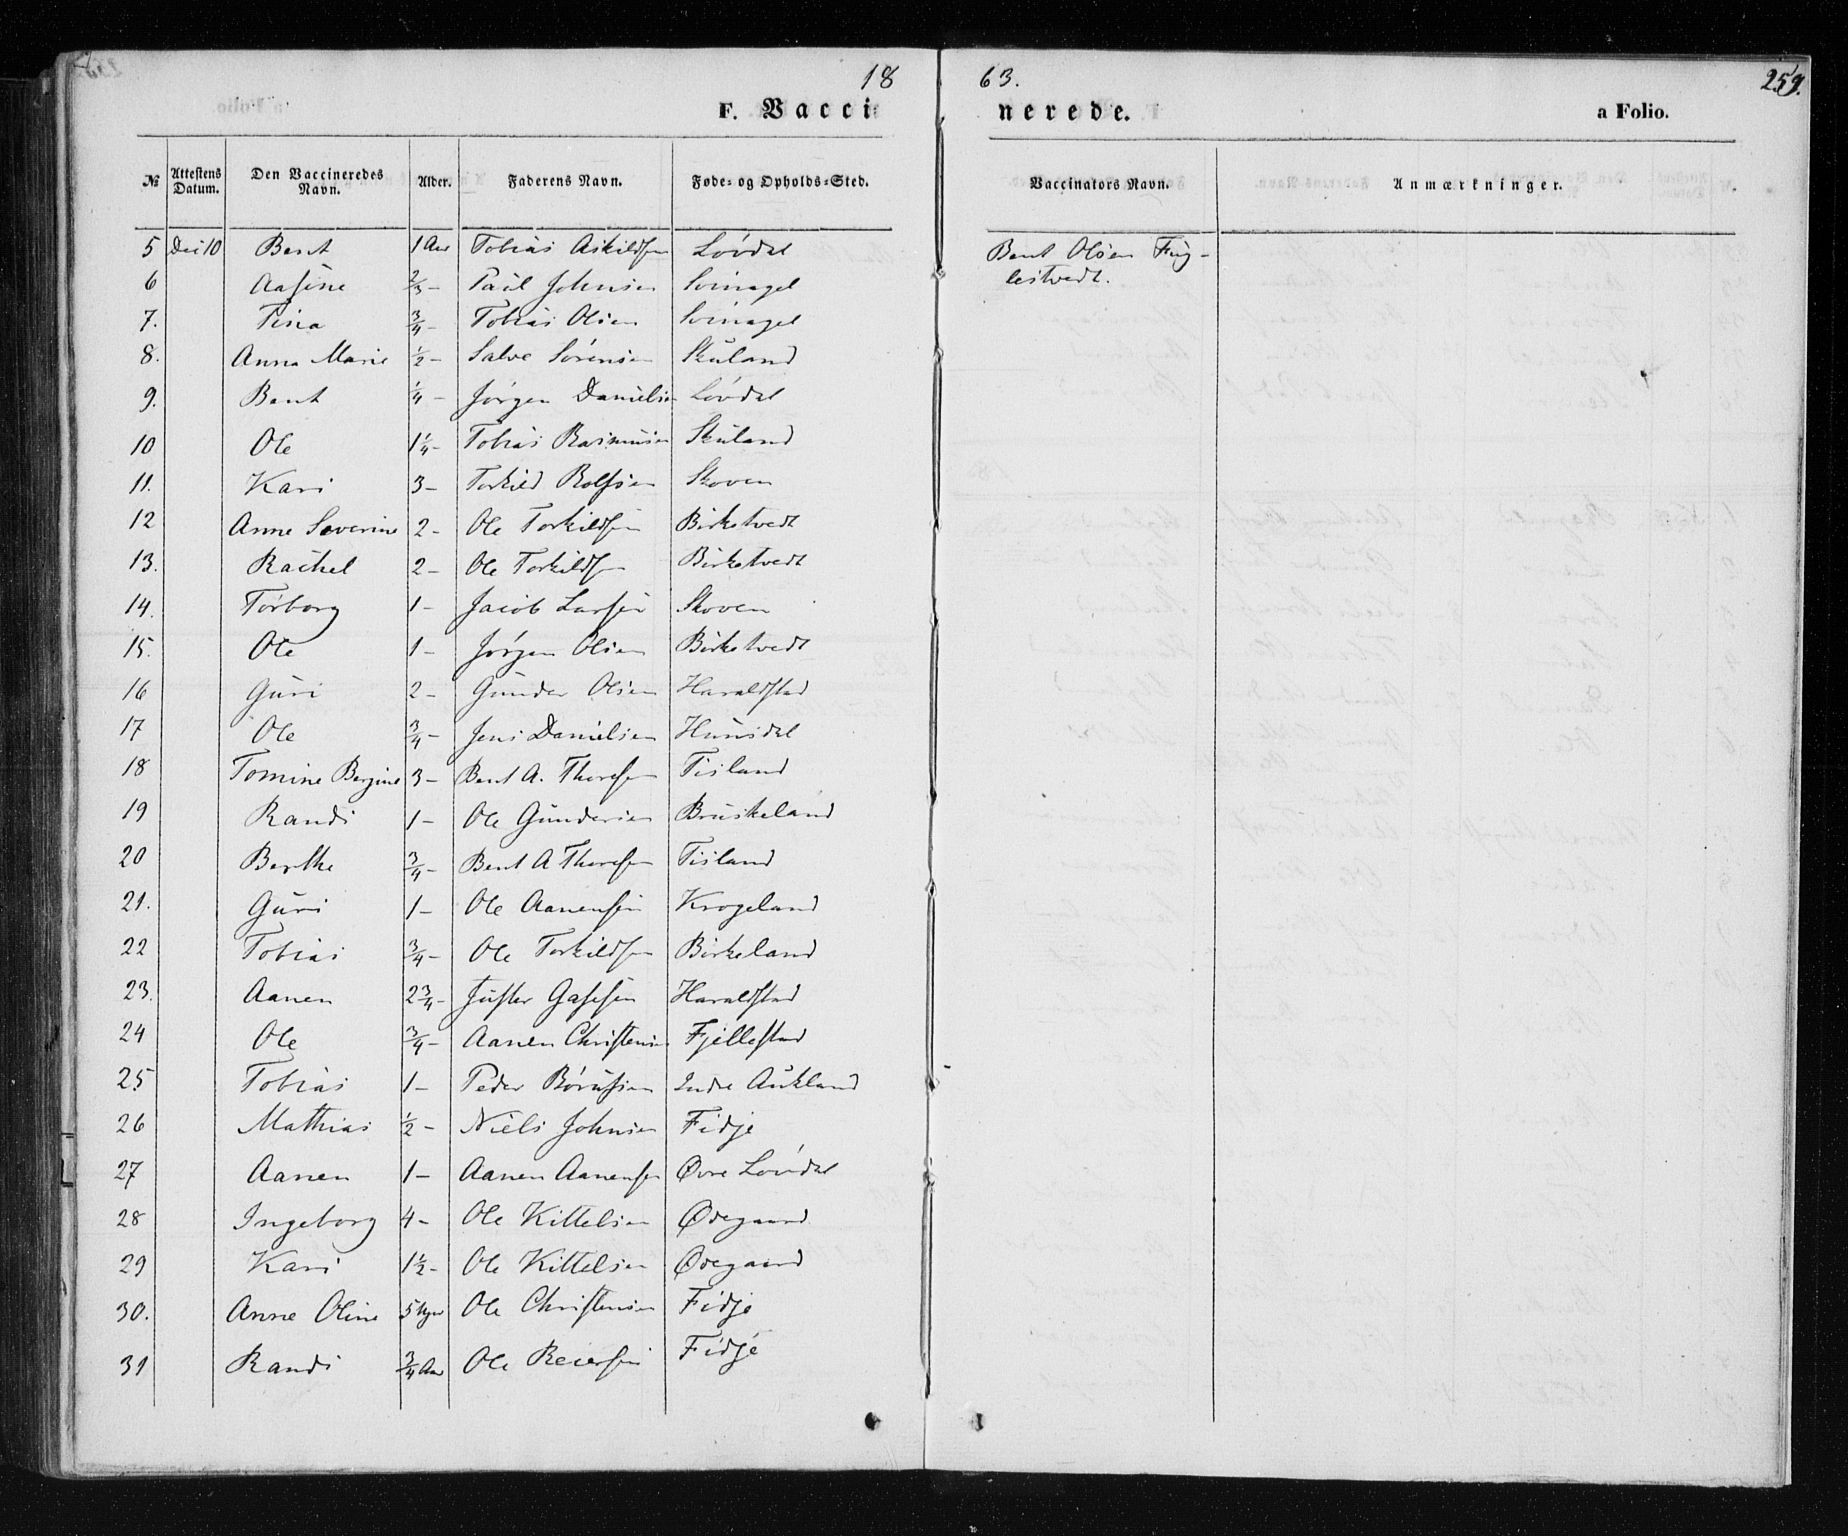 18 63. 259.
F. Vaccinerede. a Folio.
№ Attestens Datum. Den Vaccineredes Navn. Alder. Faderens Navn. Føde- og Opholds-Sted. Vaccinators Navn. Anmærkninger.
5 Dec 10 Bent 1 Aar Tobias Askildsen Lövdal Bent Olsen Fug-
lestvedt.
6 Aasine 2/3 – Paul Johnsen Svinagel
7. Tina 3/4 – Tobias Olsen Svinagel
8. Anna Marie 1/2 – Salve Sörensen Skuland
9. Bent 1/4 – Jørgen Danielsen Lövdal
10 Ole 1 1/4 – Tobias Rasmusen Skuland
11. Kari 3 – Torkild Rolfsen Skoven
12 Anne Severine 2 – Ole Torkildsen Birketvedt
13. Rachel 2 – Ole Torkildsen Birketvedt
14. Torborg 1 – Jacob Larsen Skoven
15. Ole 1 – Jørgen Olsen Birketvedt
16 Guri 2 – Gunder Olsen Haraldstad
17 Ole 3/4 – Jens Danielsen Hunsdal
18 Tomine Bergine 3 – Bent A. Thoresen Tisland
19 Randi 1 – Ole Gundersen Bruskeland
20 Berthe 3/4 – Bent A Thoresen Tisland
21. Guri 1 – Ole Aanensen Krogeland
22 Tobias 3/4 – Ole Torkildsen Birkeland
23. Aanen 2 3/4 – Gasesen Haraldstad
24 Ole 3/4 – Aanen Christensen Fjellestad
25 Tobias 1 – Peder Börufsen Indre Aukland
26 Mathias 1/2 – Niels Johnsen Fidje
27 Aanen 1 – Aanen Aanensen Øvre Lövdal
28 Ingeborg 4 – Ole Kittelsen Ødegaard
29 Kari 1 1/2 – Ole Kittelsen Ødegaard
30. Anne Oline 5 Uger Ole Christensen Fidje
31 Randi 3/4 Aar Ole Reiersen Fidje